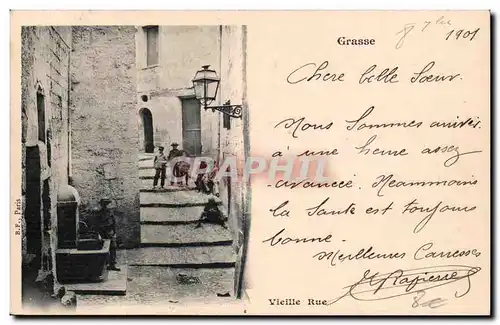 Grasse
8 7bre 1901
Chère belle Sœur.
Nous Sommes arrivés
à une heure assez
avancée. Néammoins
la Santé est toujours
bonne.
Meilleures Caresses
B.F., Paris
CARTE PHIL
Vieille Rue